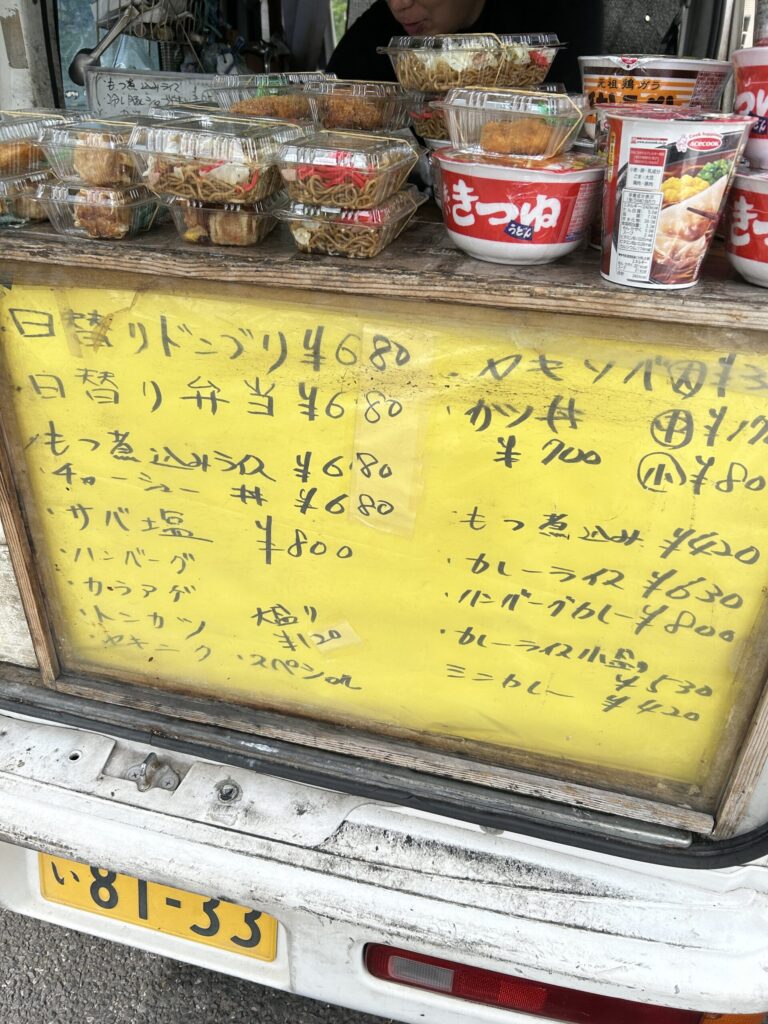 もつ煮込みライス
きつね
うどん
元祖鶏ガラ
ACECOOK
きつね
日替りドンブリ ¥680
日替り弁当 ¥680
もつ煮込みライス ¥680
チャーシュー丼 ¥680
・サバ塩 ¥800
・ハンバーグ
・カラアゲ
・トンカツ 大盛り
¥120
・ヤキニク ・スペシャル
・ヤキソバ
・カツ丼
¥700
小 ¥80
・もつ煮込み ¥420
・カレーライス ¥630
・ハンバーグカレー ¥800
・カレーライス小盛り
¥530
ミニカレー ¥420
い 81-33